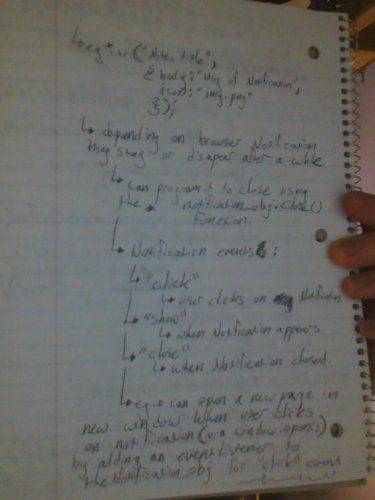 ↳ eg → ... ("Noti. title",
{ body: "Msg of Notification",
icon: "img.png"
});
↳ depending on browser Notification
may stay or disapear after a while
↳ can program it to close using
the notification_obj.close()
function.
↳ Notification events :
↳ "click"
↳ user clicks on Notification
↳ "show"
↳ when Notification appears
↳ "close"
↳ when Notification closed
↳ eg → can open a new page in
new window when user clicks
on notification (via window.open())
by adding an eventlistener to
the Notification_obj for "click" event